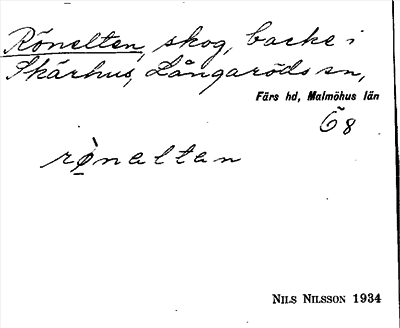 Rönelten, skog, backe i
Skärhus, Långaröds sn,
Färs hd, Malmöhus län
68
rø̀neltan
NILS NILSSON 1934